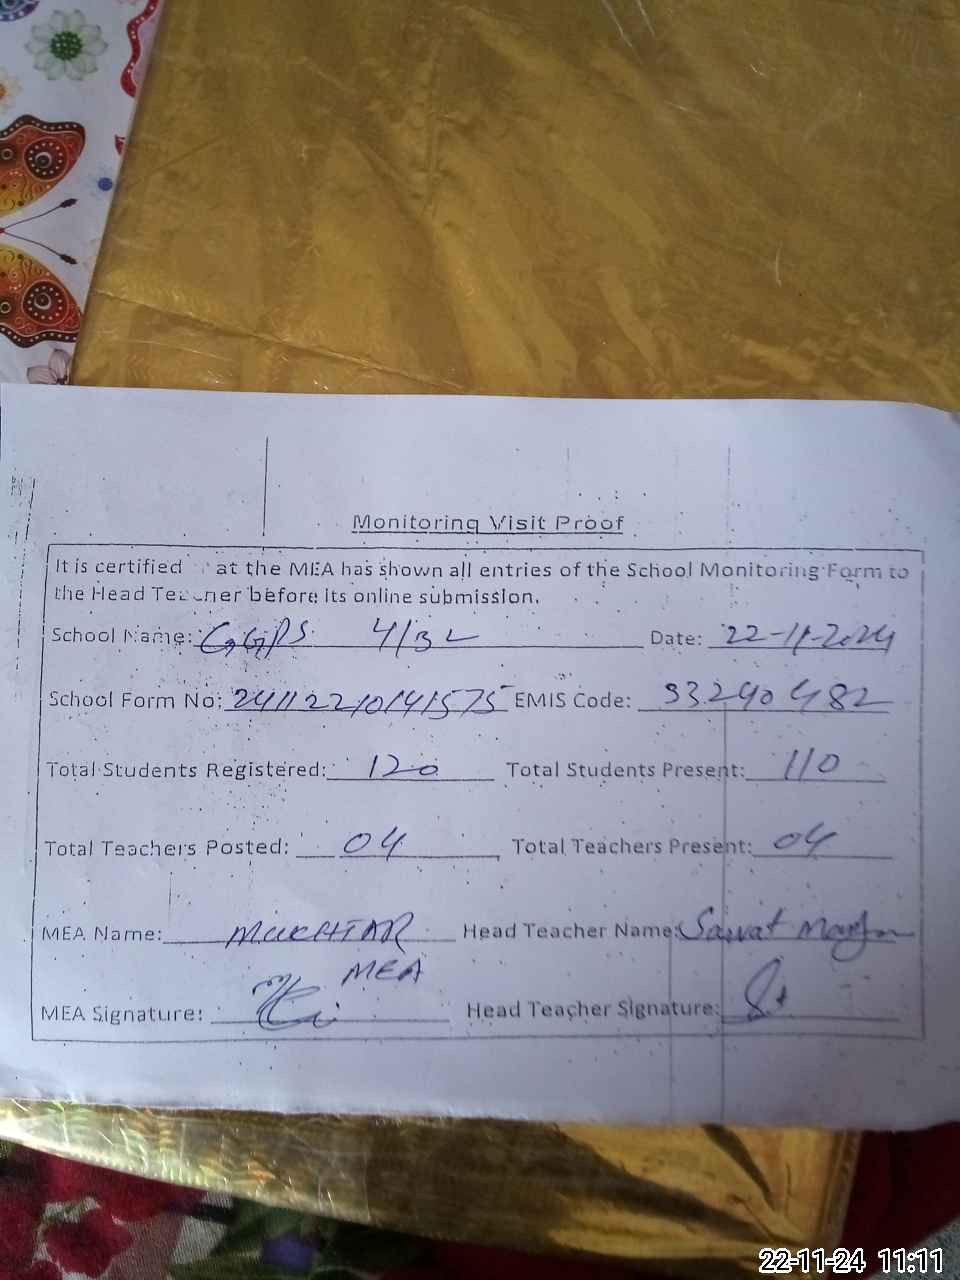 Monitoring Visit Proof
It is certified at the MEA has shown all entries of the School Monitoring Form to
the Head Teacher before its online submission.
School Name: GGPS 4/3L Date: 22-11-2024
School Form No: 24112210141575 EMIS Code: 33290482
Total Students Registered: 120 Total Students Present: 110
Total Teachers Posted: 04 Total Teachers Present: 04
MEA Name: MUKHTAR Head Teacher Name: Sarwat
MEA
MEA Signature: Head Teacher Signature:
22-11-24 11:11